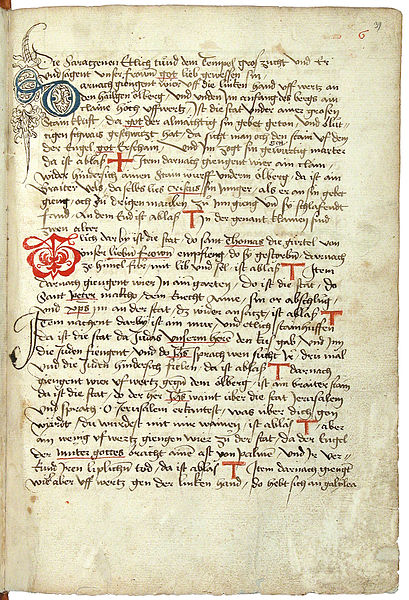 39
6
die Sarazenen Etlich und dem tempel groß zucht und Er
und sagent unser frown got lieb gewessen sin
Darnach giengent wier uff die linken hand uff wertz an
den hailgen ölberg, und unden im anfang des bergs ain
claine höch uffwertz, ist die stat under ainer grosen
stain kluft, da got der almächtig sin gebet getan und blut-
tigen schwais geschwitzt hat, da sicht man och den stain uff dem
der Engel got Erschain, und Im zögt sin marter
da ist ablas Item darnach giengent wier ain clain
wider hindersich ainen stain wurff underm ölberg, da ist ain
braiter vels, da selbs lies Cristus sin junger, als er an sin gebet
gieng, och zu drigen machen zu im gieng und sy schlaffendt
fand, An dem End ist ablas In der genant clainen sind
zwen alter
Och darby ist die stat, do sant Thomas die gürtel von
unser lieben frowen empfieng do sy gestorben, darnach
ze himel für, mit lib und sel, ist ablas Item
darnach giengent wier in ain garten, do ist die stat, do
Sant Peter malcho, dem knecht, aine, sin or abschlug,
und an der stat, das wider an satzt, ist ablas
Item nachent darby ist ain mur, und etlich stainhussen
da ist die stat da Judas unserm heren den kus gab, und Im
die Juden fiengent, und do Jhs sprach wen sucht Ir, dri mal
und die Juden hindersich fielen, da ist ablas darnach
giengent wier uff wertz gegen dem ölberg, ist ain braiter stain
da ist die stat, do der her Jhs waint über die stat Jerusalem
und sprach, O Jerusalem erkantest, was über dich gen
würdt, du würdest mit mir wainen, ist ablas aber
ain wenig uf wertz giengen wier zu der stat, da der Engel
der muter gottes bracht ainen ast von palmen und Ir ver-
kündt Iren liplichen tod, da ist ablas Item darnach giengent
wier aber uff wertz gen der linken hand, do hebt sich an galylea